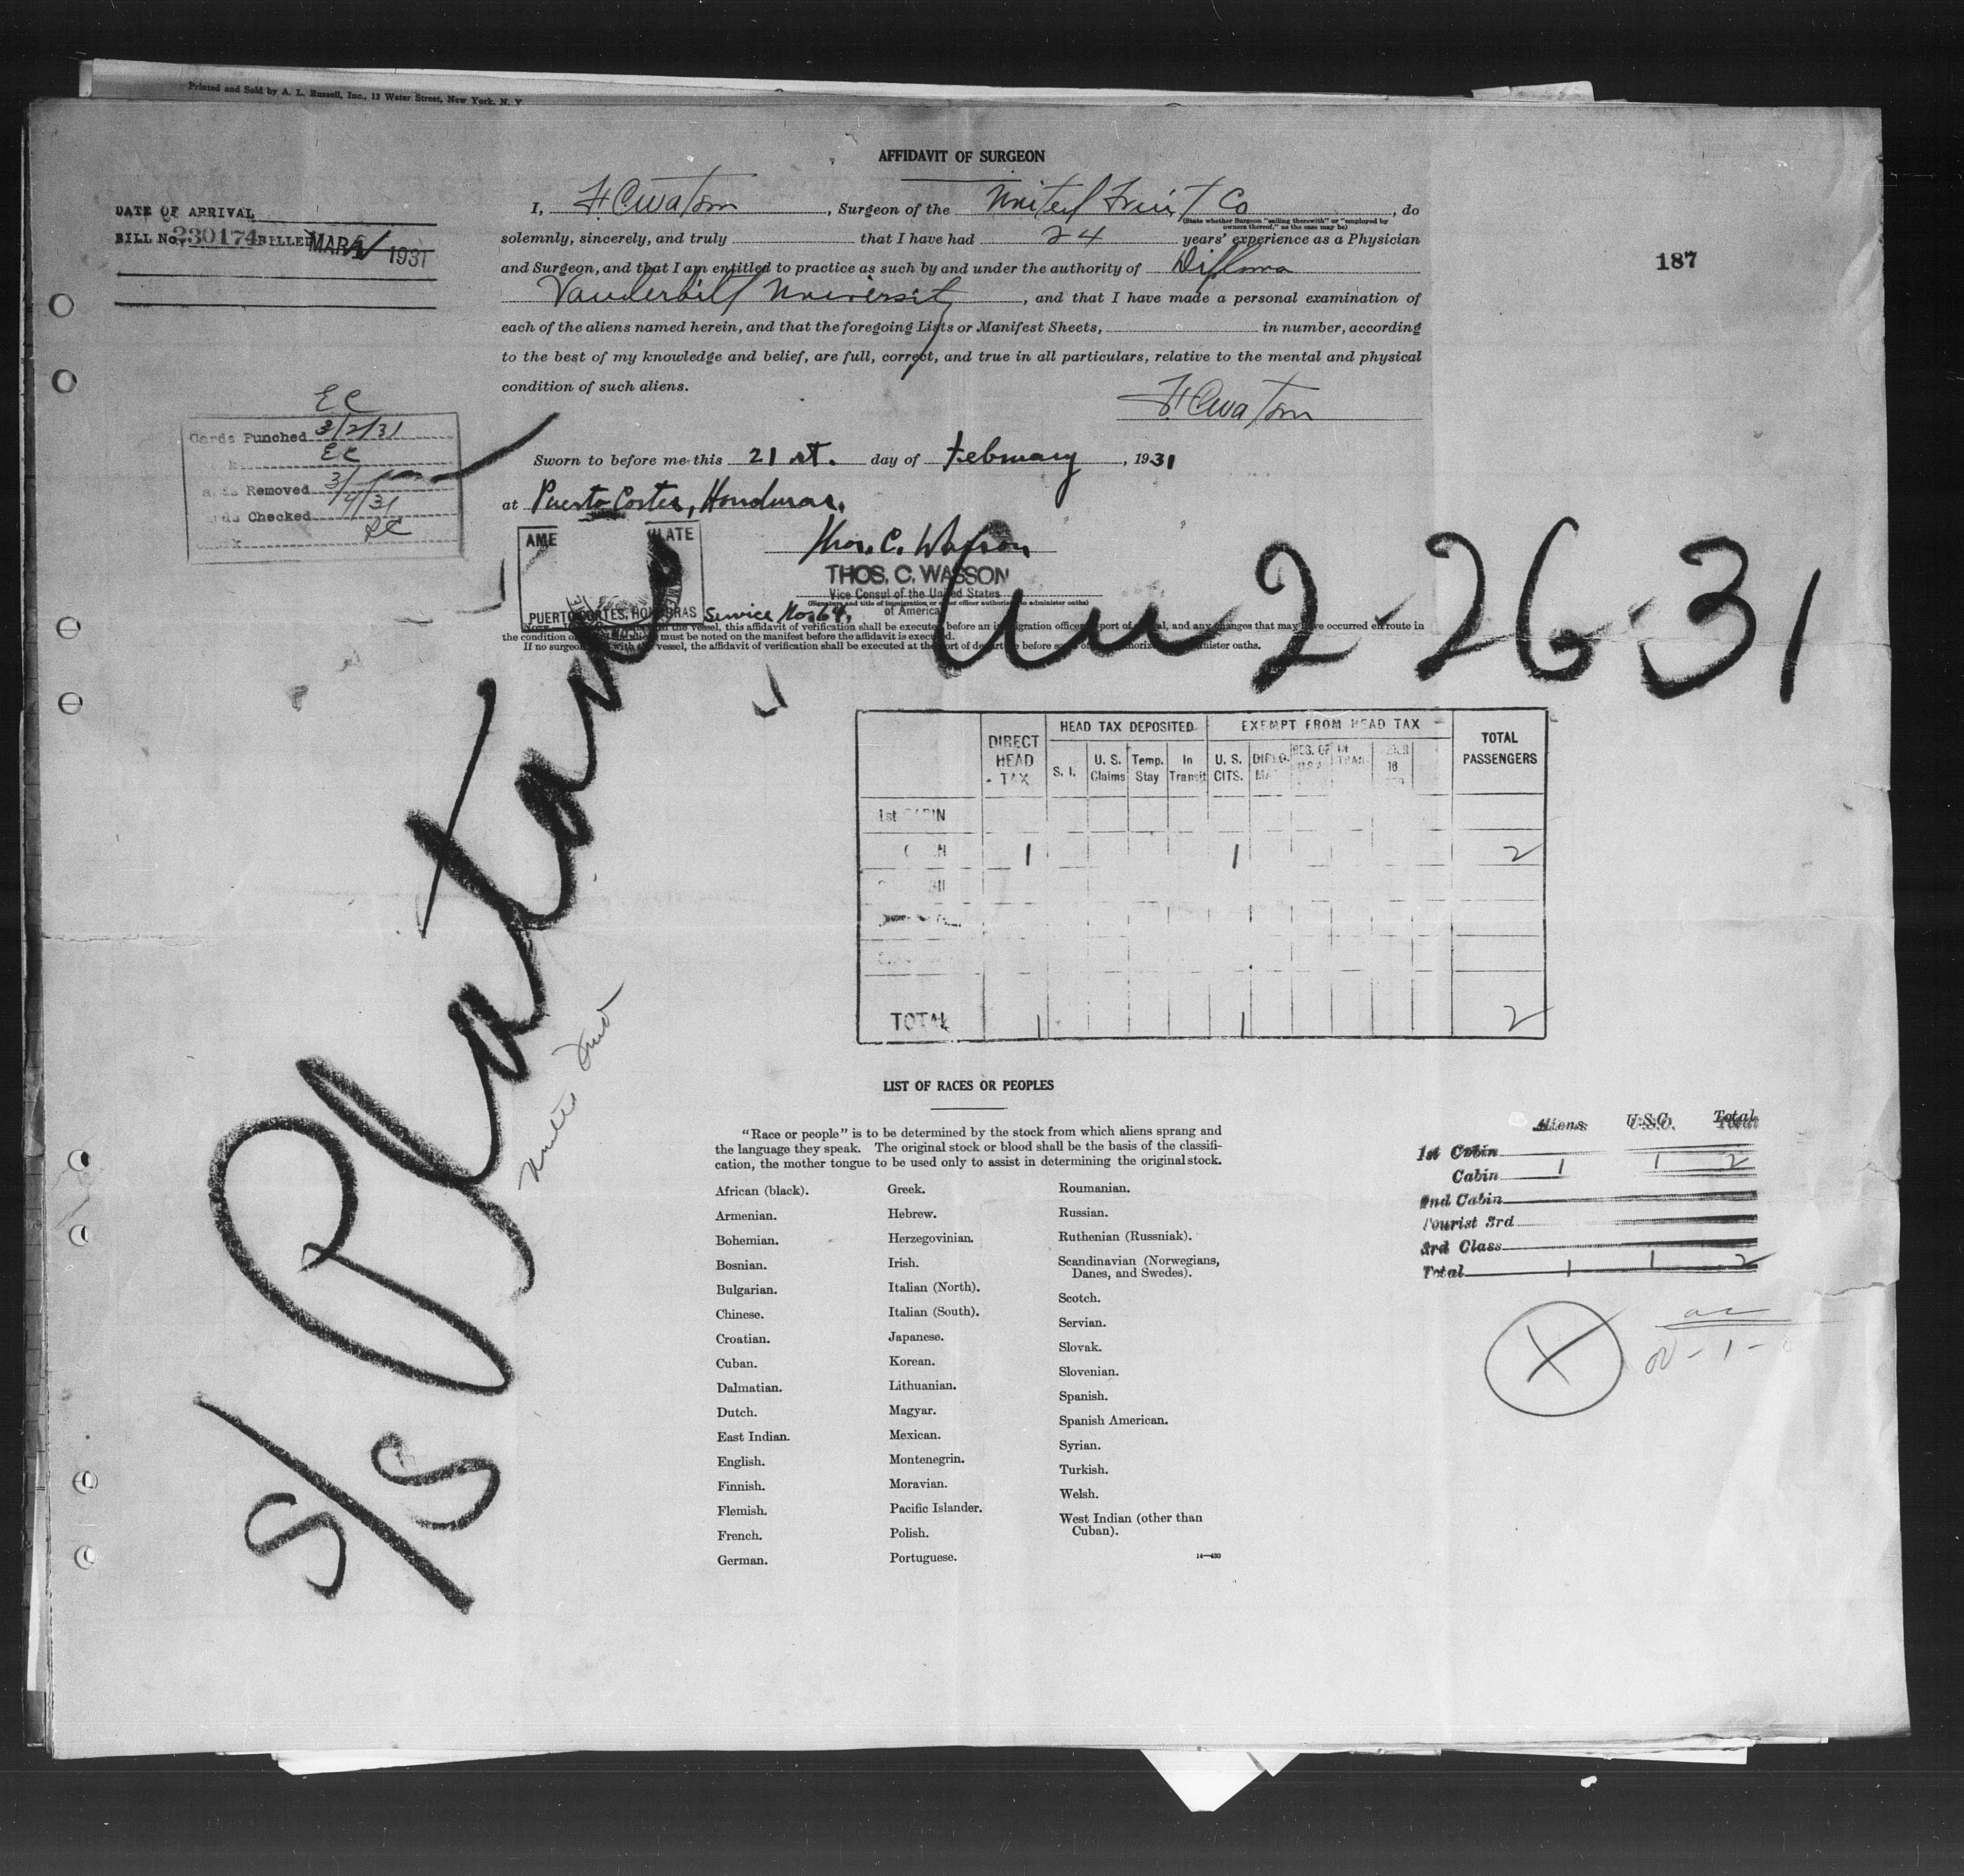 Printed and Sold by A. L. Russell, Inc., 13 Water Street, New York, N. Y
AFFIDAVIT OF SURGEON
DATE OF ARRIVAL
BILL No. 230174 BILLED MAR 1931
187
I, H. C. Watson, Surgeon of the United Fruit Co, do
(State whether Surgeon "sailing therewith" or "employed by
owners thereof," as the case may be)
solemnly, sincerely, and truly that I have had 24 years' experience as a Physician
and Surgeon, and that I am entitled to practice as such by and under the authority of Diploma
Vanderbilt University, and that I have made a personal examination of
each of the aliens named herein, and that the foregoing Lists or Manifest Sheets, in number, according
to the best of my knowledge and belief, are full, correct, and true in all particulars, relative to the mental and physical
condition of such aliens.
H. C. Watson
EC
Cards Punched 3/2/31
EC
Removed 3/4/31
Checked
Sworn to before me this 21 st. day of February, 1931
at Puerto Cortes, Honduras.
Thos. C. Wasson
THOS. C. WASSON
Vice Consul of the United States
of America
(Signature and title of immigration or other officer authorized to administer oaths)
PUERTO CORTES, HONDURAS
Service No. 64.
2-26-31
the vessel, this affidavit of verification shall be executed before an immigration officer port of, and any changes that may have occurred en route in
the condition of must be noted on the manifest before the affidavit is executed.
If no surgeon with the vessel, the affidavit of verification shall be executed at the port of departure before oaths.
S/S Platano
United Fruit
DIRECT HEAD TAX
HEAD TAX DEPOSITED
EXEMPT FROM HEAD TAX
TOTAL PASSENGERS
S. I.
U. S. Claims
Temp. Stay
In Transit
U. S. CITS.
1st CABIN
1 1 2
TOTAL 1 1 2
LIST OF RACES OR PEOPLES
"Race or people" is to be determined by the stock from which aliens sprang and
the language they speak. The original stock or blood shall be the basis of the classifi-
cation, the mother tongue to be used only to assist in determining the original stock.
African (black).
Armenian.
Bohemian.
Bosnian.
Bulgarian.
Chinese.
Croatian.
Cuban.
Dalmatian.
Dutch.
East Indian.
English.
Finnish.
Flemish.
French.
German.
Greek.
Hebrew.
Herzegovinian.
Irish.
Italian (North).
Italian (South).
Japanese.
Korean.
Lithuanian.
Magyar.
Mexican.
Montenegrin.
Moravian.
Pacific Islander.
Polish.
Portuguese.
Roumanian.
Russian.
Ruthenian (Russniak).
Scandinavian (Norwegians,
Danes, and Swedes).
Scotch.
Servian.
Slovak.
Slovenian.
Spanish.
Spanish American.
Syrian.
Turkish.
Welsh.
West Indian (other than
Cuban).
14—430
Aliens U.S.C. Total
1st Cabin
Cabin 1 1 2
2nd Cabin
Tourist 3rd
3rd Class
Total 1 1 2